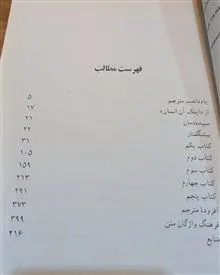 فهرست مطالب
یادداشت مترجم ۵
از «اینک آن انسان» ۱۷
سپیده‌دمان ۲۱
پیشگفتار ۲۲
کتاب یکم ۳۱
کتاب دوم ۱۰۵
کتاب سوم ۱۵۹
کتاب چهارم ۲۱۳
کتاب پنجم ۲۹۱
افزودهٔ مترجم ۳۷۳
فرهنگ واژگان متن ۳۹۹
منابع ۴۱۶